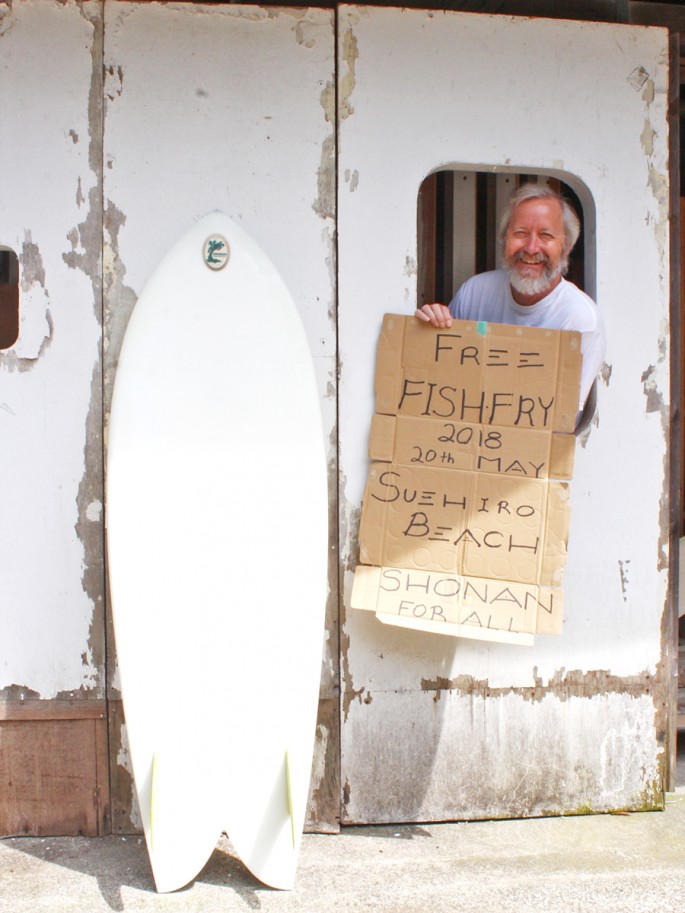 FREE
FISH·FRY
2018
20th MAY
SUEHIRO
BEACH
SHONAN
FOR ALL